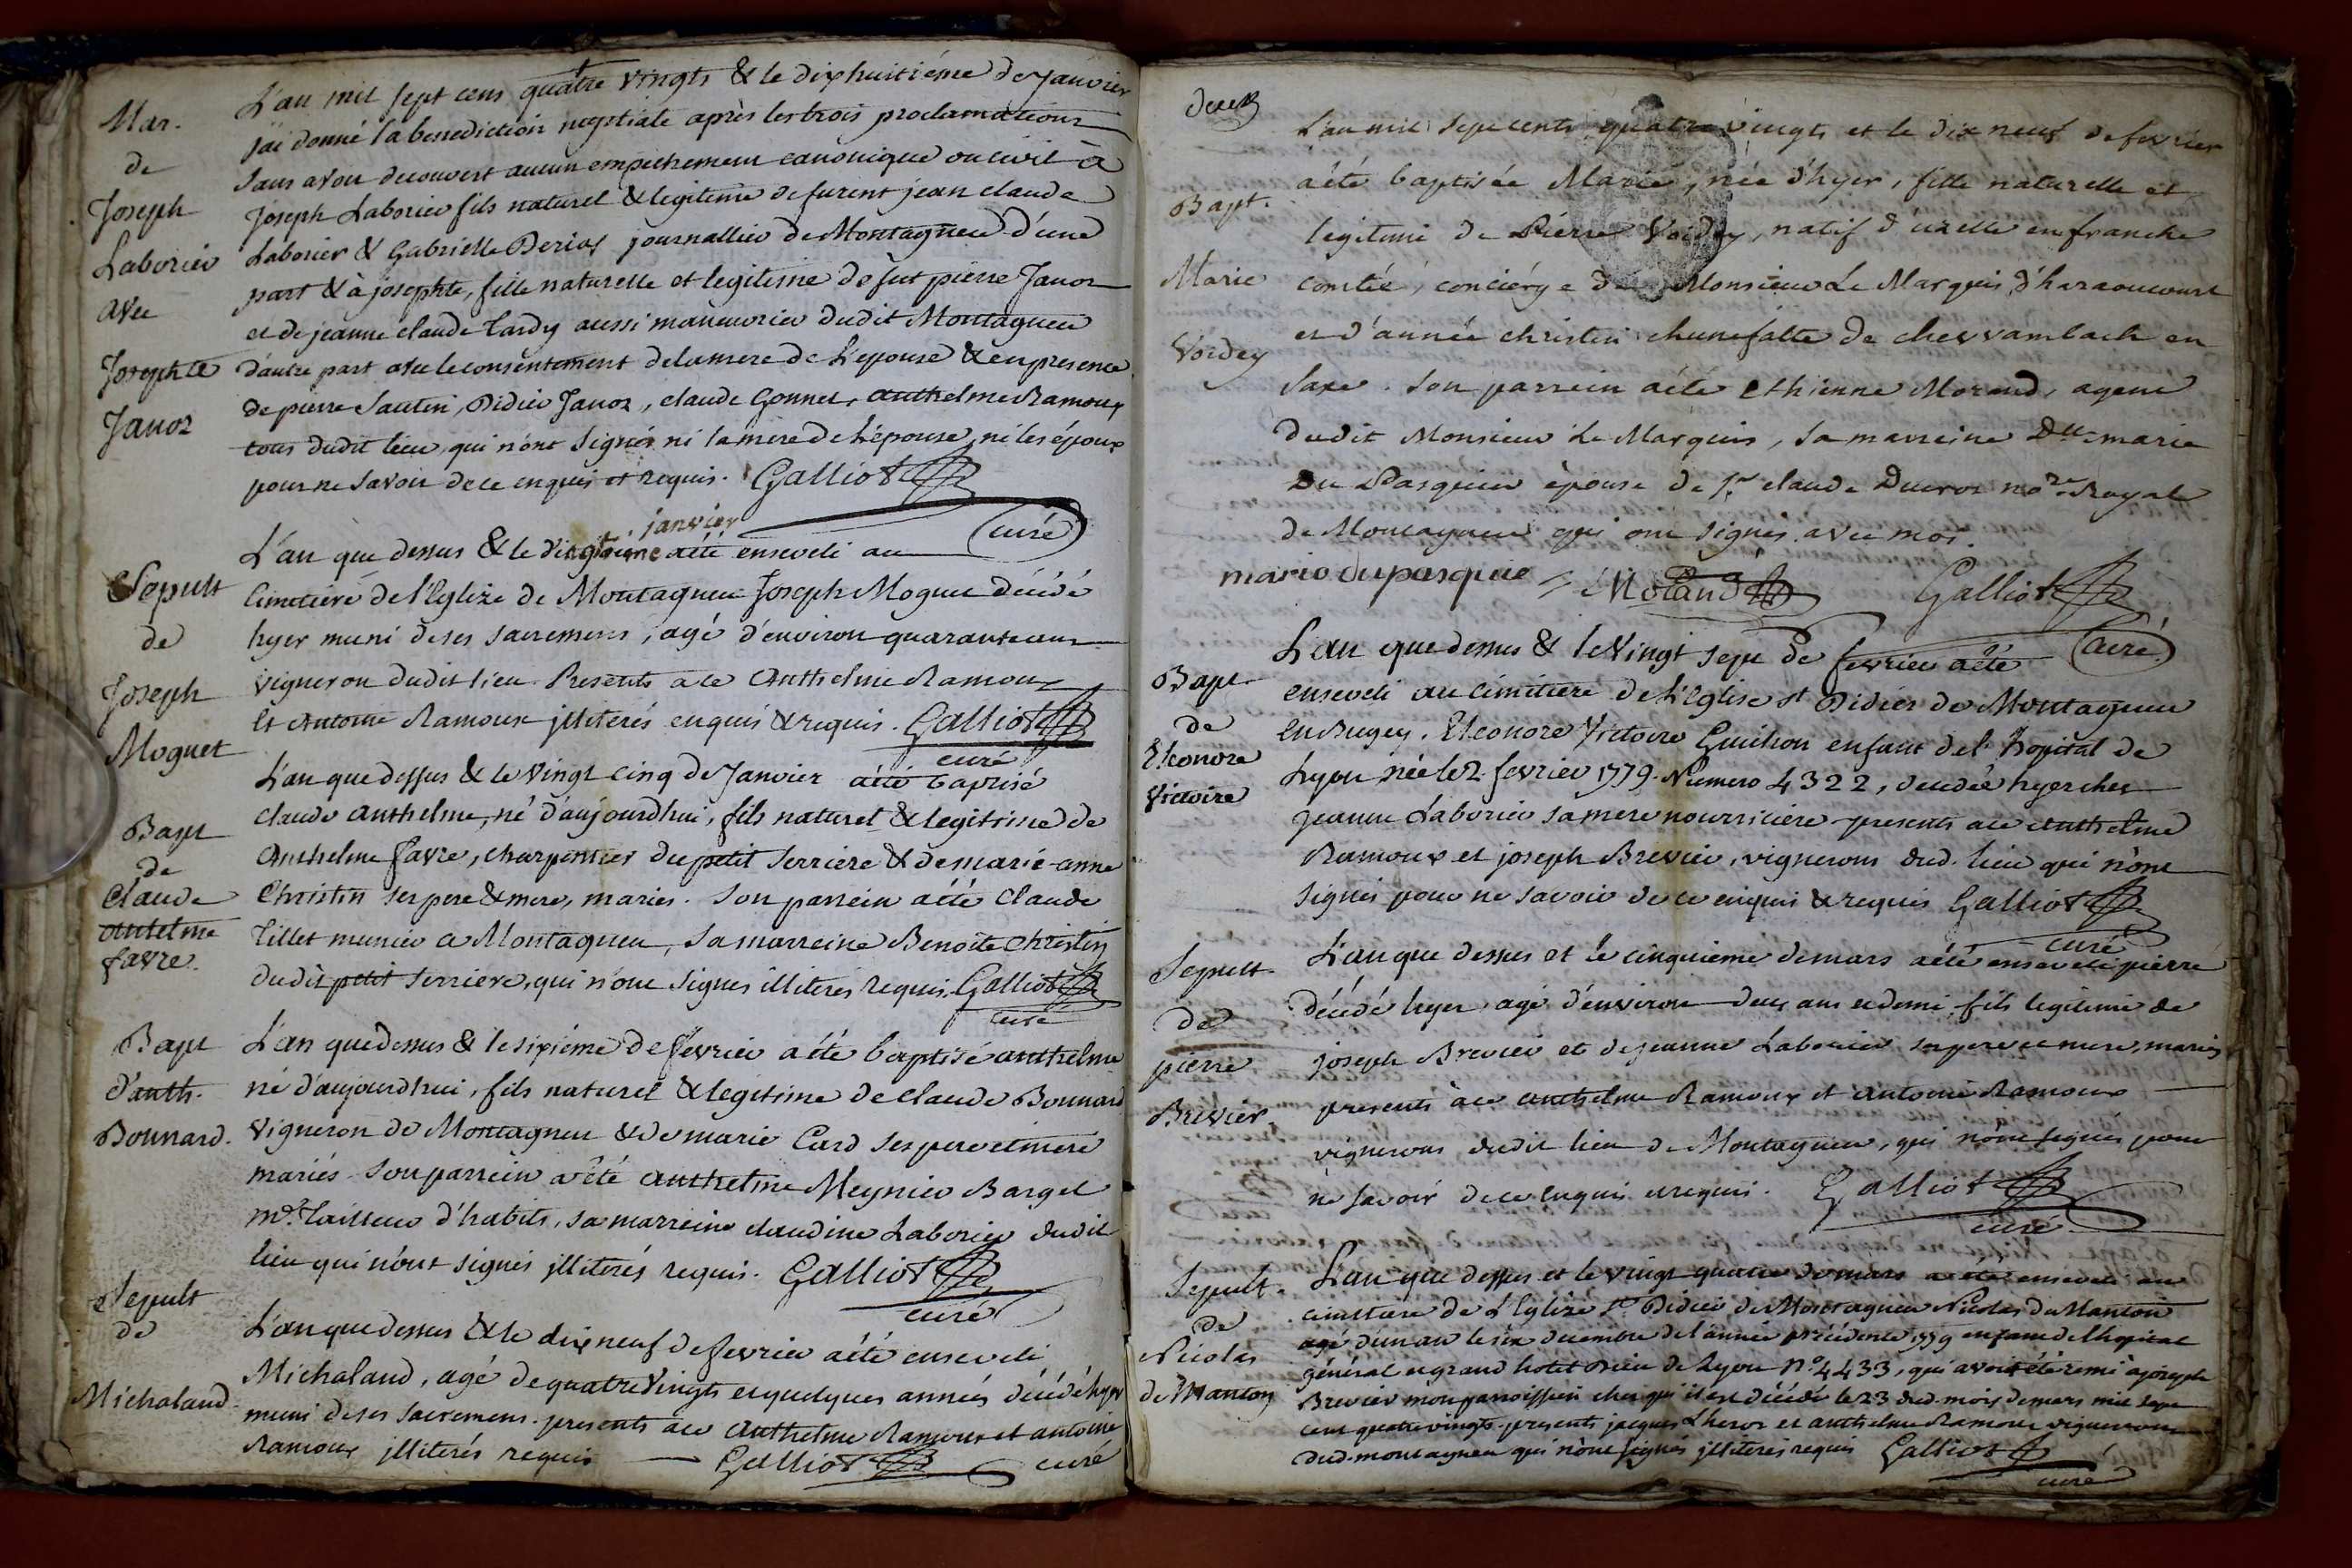 Mar.
de
Joseph
Laborier
avec
Josephte
Janoz
L'an mil sept cens quatre vingts & le dixhuitiéme de Janvier
j'ai donné la benediction nuptiale après les trois proclamations
sans avoir decouvert aucun empechement canonique ou civil à
Joseph Laborier fils naturel & legitime de furent jean claude
Laborier & Gabrielle journallier de Montagneu d'une
part & à josephte, fille naturelle et legitime de fut pierre Janoz
et de jeanne claude Tardy aussi manœuvrier dudit Montagneu
d'autre part avec le consentement de la mere de L'epouse & en presence
de pierre Santin, Didier Janoz, claude Gonnet, anthelme Ramoux
tous dudit lieu, qui n'ont signés ni la mere de L'épouse, ni les époux
pour ne savoir de ce enquis et requis. Galliot
curé
Sepult
de
Joseph
Moguet
janvier
L'an que dessus & le vingtieme a été enseveli au
Cimetiere de l'Eglize de Montagneu Joseph Moguet décédé
hyer muni de ses sacremens, agé d'environ quarante ans
vigneron dudit lieu. Presents a ce Anthelme Ramoux
et Antoine Ramoux jlliterés enquis & requis. Galliot
curé
Bapt
de
Claude
antelme
favre.
L'an que dessus & le vingt cinq de Janvier a été baptisé
claude anthelme, né d'aujourdhui, fils naturel & legitime de
Anthelme favre, charpentier du petit Serriere & de marie-anne
Christin ses pere & mere, mariés. Son parrein a été Claude
Tillet munier a Montagneu, Sa marreine Benoite Christin
dudit petit Serriere, qui n'ont signés illiterés requis. Galliot
curé
Bapt
d'anth.
Bonnard.
L'an que dessus & le sixiéme de fevrier a été baptisé anthelme
né d'aujourdhui, fils naturel & legitime de claude Bonnard
vigneron de Montagneu & de marie Card ses pere et mere
mariés. Son parrein a été anthelme Meynier Bargel
md. Tailleur d'habits, sa marreine claudine Laborier dudit
lieu qui n'ont signés jlliterés requis. Galliot
curé
Sepult
de
Michaland
L'an que dessus & le dix neuf de fevrier a été enseveli
Michaland, agé de quatre vingts et quelques années décédé hyer
muni de ses sacremens. presents a ce Anthelme Ramoux et antoine
Ramoux jlliterés requis Galliot curé
deux
Bapt.
Marie
Voidey
L'an mil sept cents quatre vingts et le dix neuf de fevrier
a été baptisée Marie, née d'hyer, fille naturelle et
legitime de Pierre Voidey, natif d'uzelle en franche
comtée, conciérge de Monsieur Le Marquis d'haraoucourt
et d'année christin chunefalte de chevvambach en
Saxe. Son parrein a été Ethienne Morand, agent
dudit Monsieur Le Marquis, sa marreine Dlle marie
Du Pasquier épouse de Sr claude Ducroz nore Royal
de Montagneu qui ont signés avec moi.
marie dupasquie Morand Galliot
curé
Bapt
de
Eleonore
Victoire
L'an que dessus & le vingt sept de fevrier a été
enseveli au cimitiere de L'Eglise st Didier de Montagneu
En Bugey. Eleonore Victoire Guichon enfant de l'hopital de
Lyon née le 2. fevrier 1779. Numero 4322, decedée hyer chez
Jeanne Laborier sa mere nourriciere presents a ce anthelme
Ramoux et joseph Brevier, vignerons dud. lieu qui n'ont
signés pour ne savoir de ce enquis & requis Galliot
curé
Sepult
de
pierre
Brevier.
L'an que dessus et le cinquieme de mars a été enseveli pierre
décédé hyer agé d'environ deux ans et demi, fils legitime de
joseph Brevier et de jeanne Laborier ses pere et mere, mariés
presents à ce anthelme Ramoux et antoine Ramoux
vignerons dudit lieu de Montagneu, qui n'ont signés pour
ne savoir de ce enquis et requis. Galliot
curé
Sepult.
de
Nicolas
de Manton
L'an que dessus et le vingt quatre de mars a été enseveli au
cimitiere de L'Eglize st Didier de Montagneu Nicolas de Manton
agé d'un an le six decembre de l'année précédente 1779 enfant de lhopital
général et grand hotel Dieu de Lyon N.o 4433, qui avoit été remi a joseph
Brevier mon parroissien chez qui il est décédé le 23 dud. mois de mars mil sept
cent quatre vingts. presents jacques Lheroz et anthelme Ramoux vignerons
dud. montagneu qui n'ont signés jlliterés requis Galliot
curé